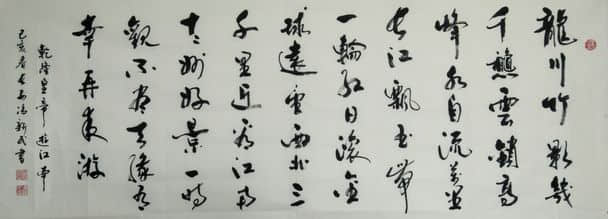 龍川竹影幾
千龝雲鎖高
峰水自流萬里
長江飄玉帶
一輪紅日滾金
球遠望西北三
千里近看江南
十六州好景一時
觀不盡天緣有
幸再來游
乾隆皇帝遊江南
己亥春長安馮新民書